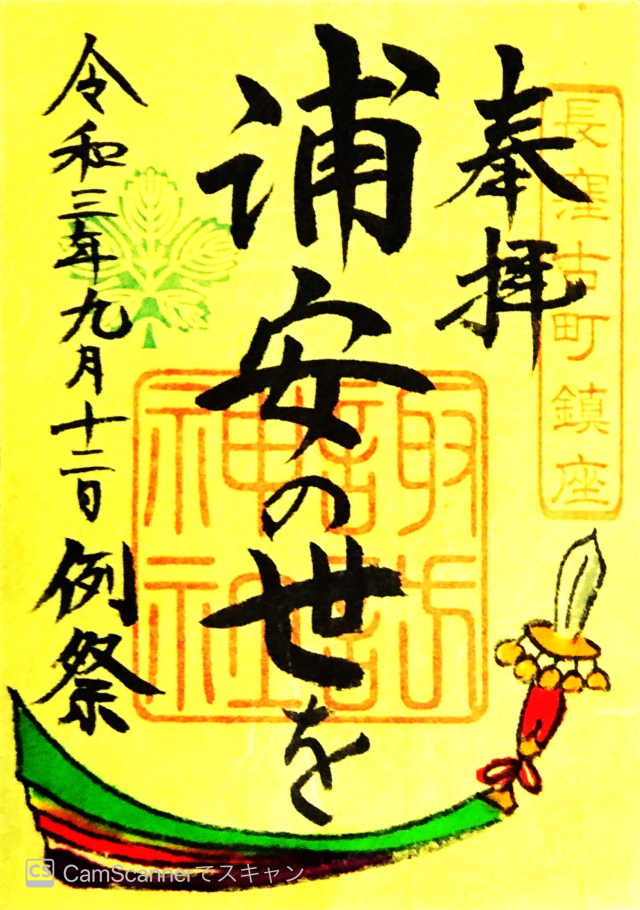 奉拝
長窪古町鎮座
浦安の世を
諏訪
神社
令和三年九月十二日 例祭
CS CamScannerでスキャン